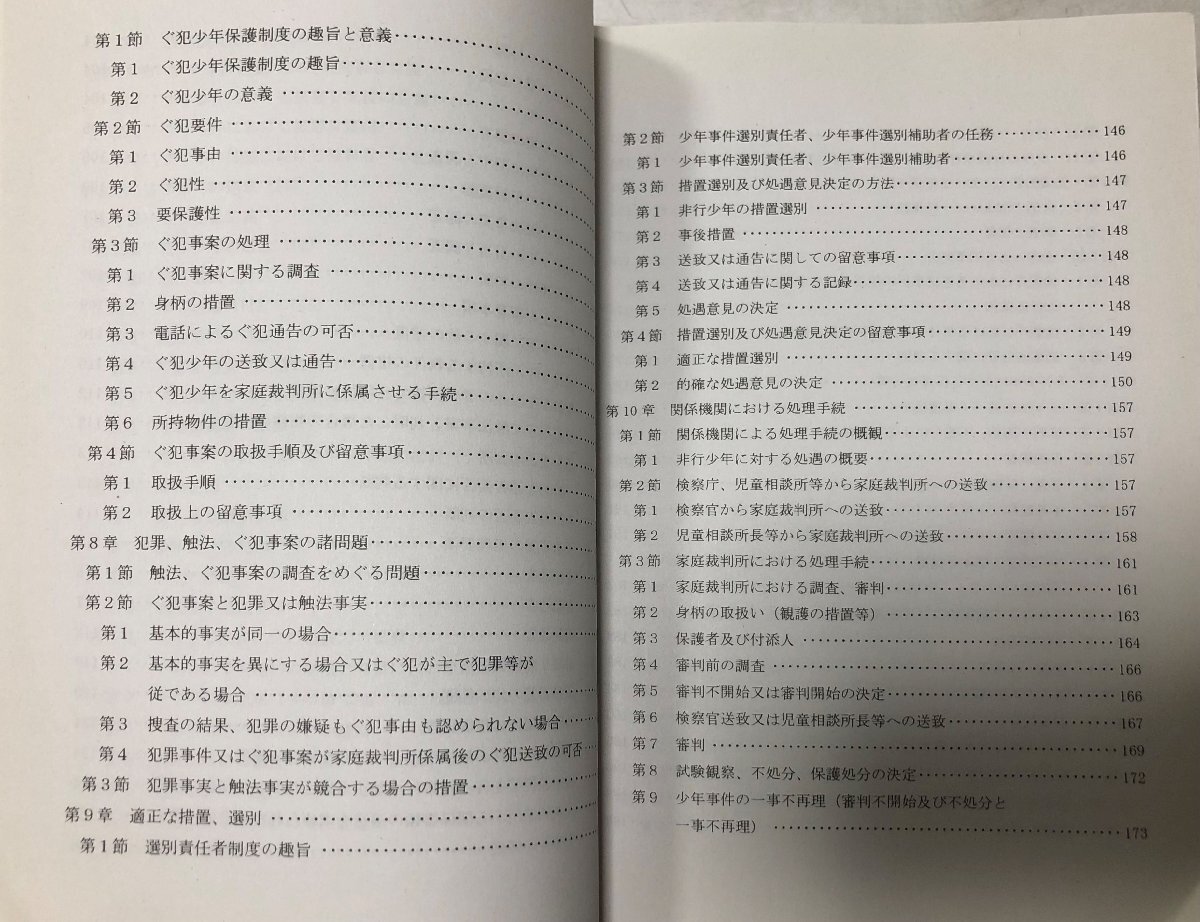 第1節　ぐ犯少年保護制度の趣旨と意義
第1　ぐ犯少年保護制度の趣旨
第2　ぐ犯少年の意義
第2節　ぐ犯要件
第1　ぐ犯事由
第2　ぐ犯性
第3　要保護性
第3節　ぐ犯事案の処理
第1　ぐ犯事案に関する調査
第2　身柄の措置
第3　電話によるぐ犯通告の可否
第4　ぐ犯少年の送致又は通告
第5　ぐ犯少年を家庭裁判所に係属させる手続
第6　所持物件の措置
第4節　ぐ犯事案の取扱手順及び留意事項
第1　取扱手順
第2　取扱上の留意事項
第8章　犯罪、触法、ぐ犯事案の諸問題
第1節　触法、ぐ犯事案の調査をめぐる問題
第2節　ぐ犯事案と犯罪又は触法事実
第1　基本的事実が同一の場合
第2　基本的事実を異にする場合又はぐ犯が主で犯罪等が
従である場合
第3　捜査の結果、犯罪の嫌疑もぐ犯事由も認められない場合
第4　犯罪事件又はぐ犯事案が家庭裁判所係属後のぐ犯送致の可否
第3節　犯罪事実と触法事実が競合する場合の措置
第9章　適正な措置、選別
第1節　選別責任者制度の趣旨
第2節　少年事件選別責任者、少年事件選別補助者の任務 146
第1　少年事件選別責任者、少年事件選別補助者 146
第3節　措置選別及び処遇意見決定の方法 147
第1　非行少年の措置選別 147
第2　事後措置 148
第3　送致又は通告に関しての留意事項 148
第4　送致又は通告に関する記録 148
第5　処遇意見の決定 148
第4節　措置選別及び処遇意見決定の留意事項 149
第1　適正な措置選別 149
第2　的確な処遇意見の決定 150
第10章　関係機関における処理手続 157
第1節　関係機関による処理手続の概観 157
第1　非行少年に対する処遇の概要 157
第2節　検察庁、児童相談所等から家庭裁判所への送致 157
第1　検察官から家庭裁判所への送致 157
第2　児童相談所長等から家庭裁判所への送致 158
第3節　家庭裁判所における処理手続 161
第1　家庭裁判所における調査、審判 161
第2　身柄の取扱い（観護の措置等） 163
第3　保護者及び付添人 164
第4　審判前の調査 166
第5　審判不開始又は審判開始の決定 166
第6　検察官送致又は児童相談所長等への送致 167
第7　審判 169
第8　試験観察、不処分、保護処分の決定 172
第9　少年事件の一事不再理（審判不開始及び不処分と
一事不再理） 173